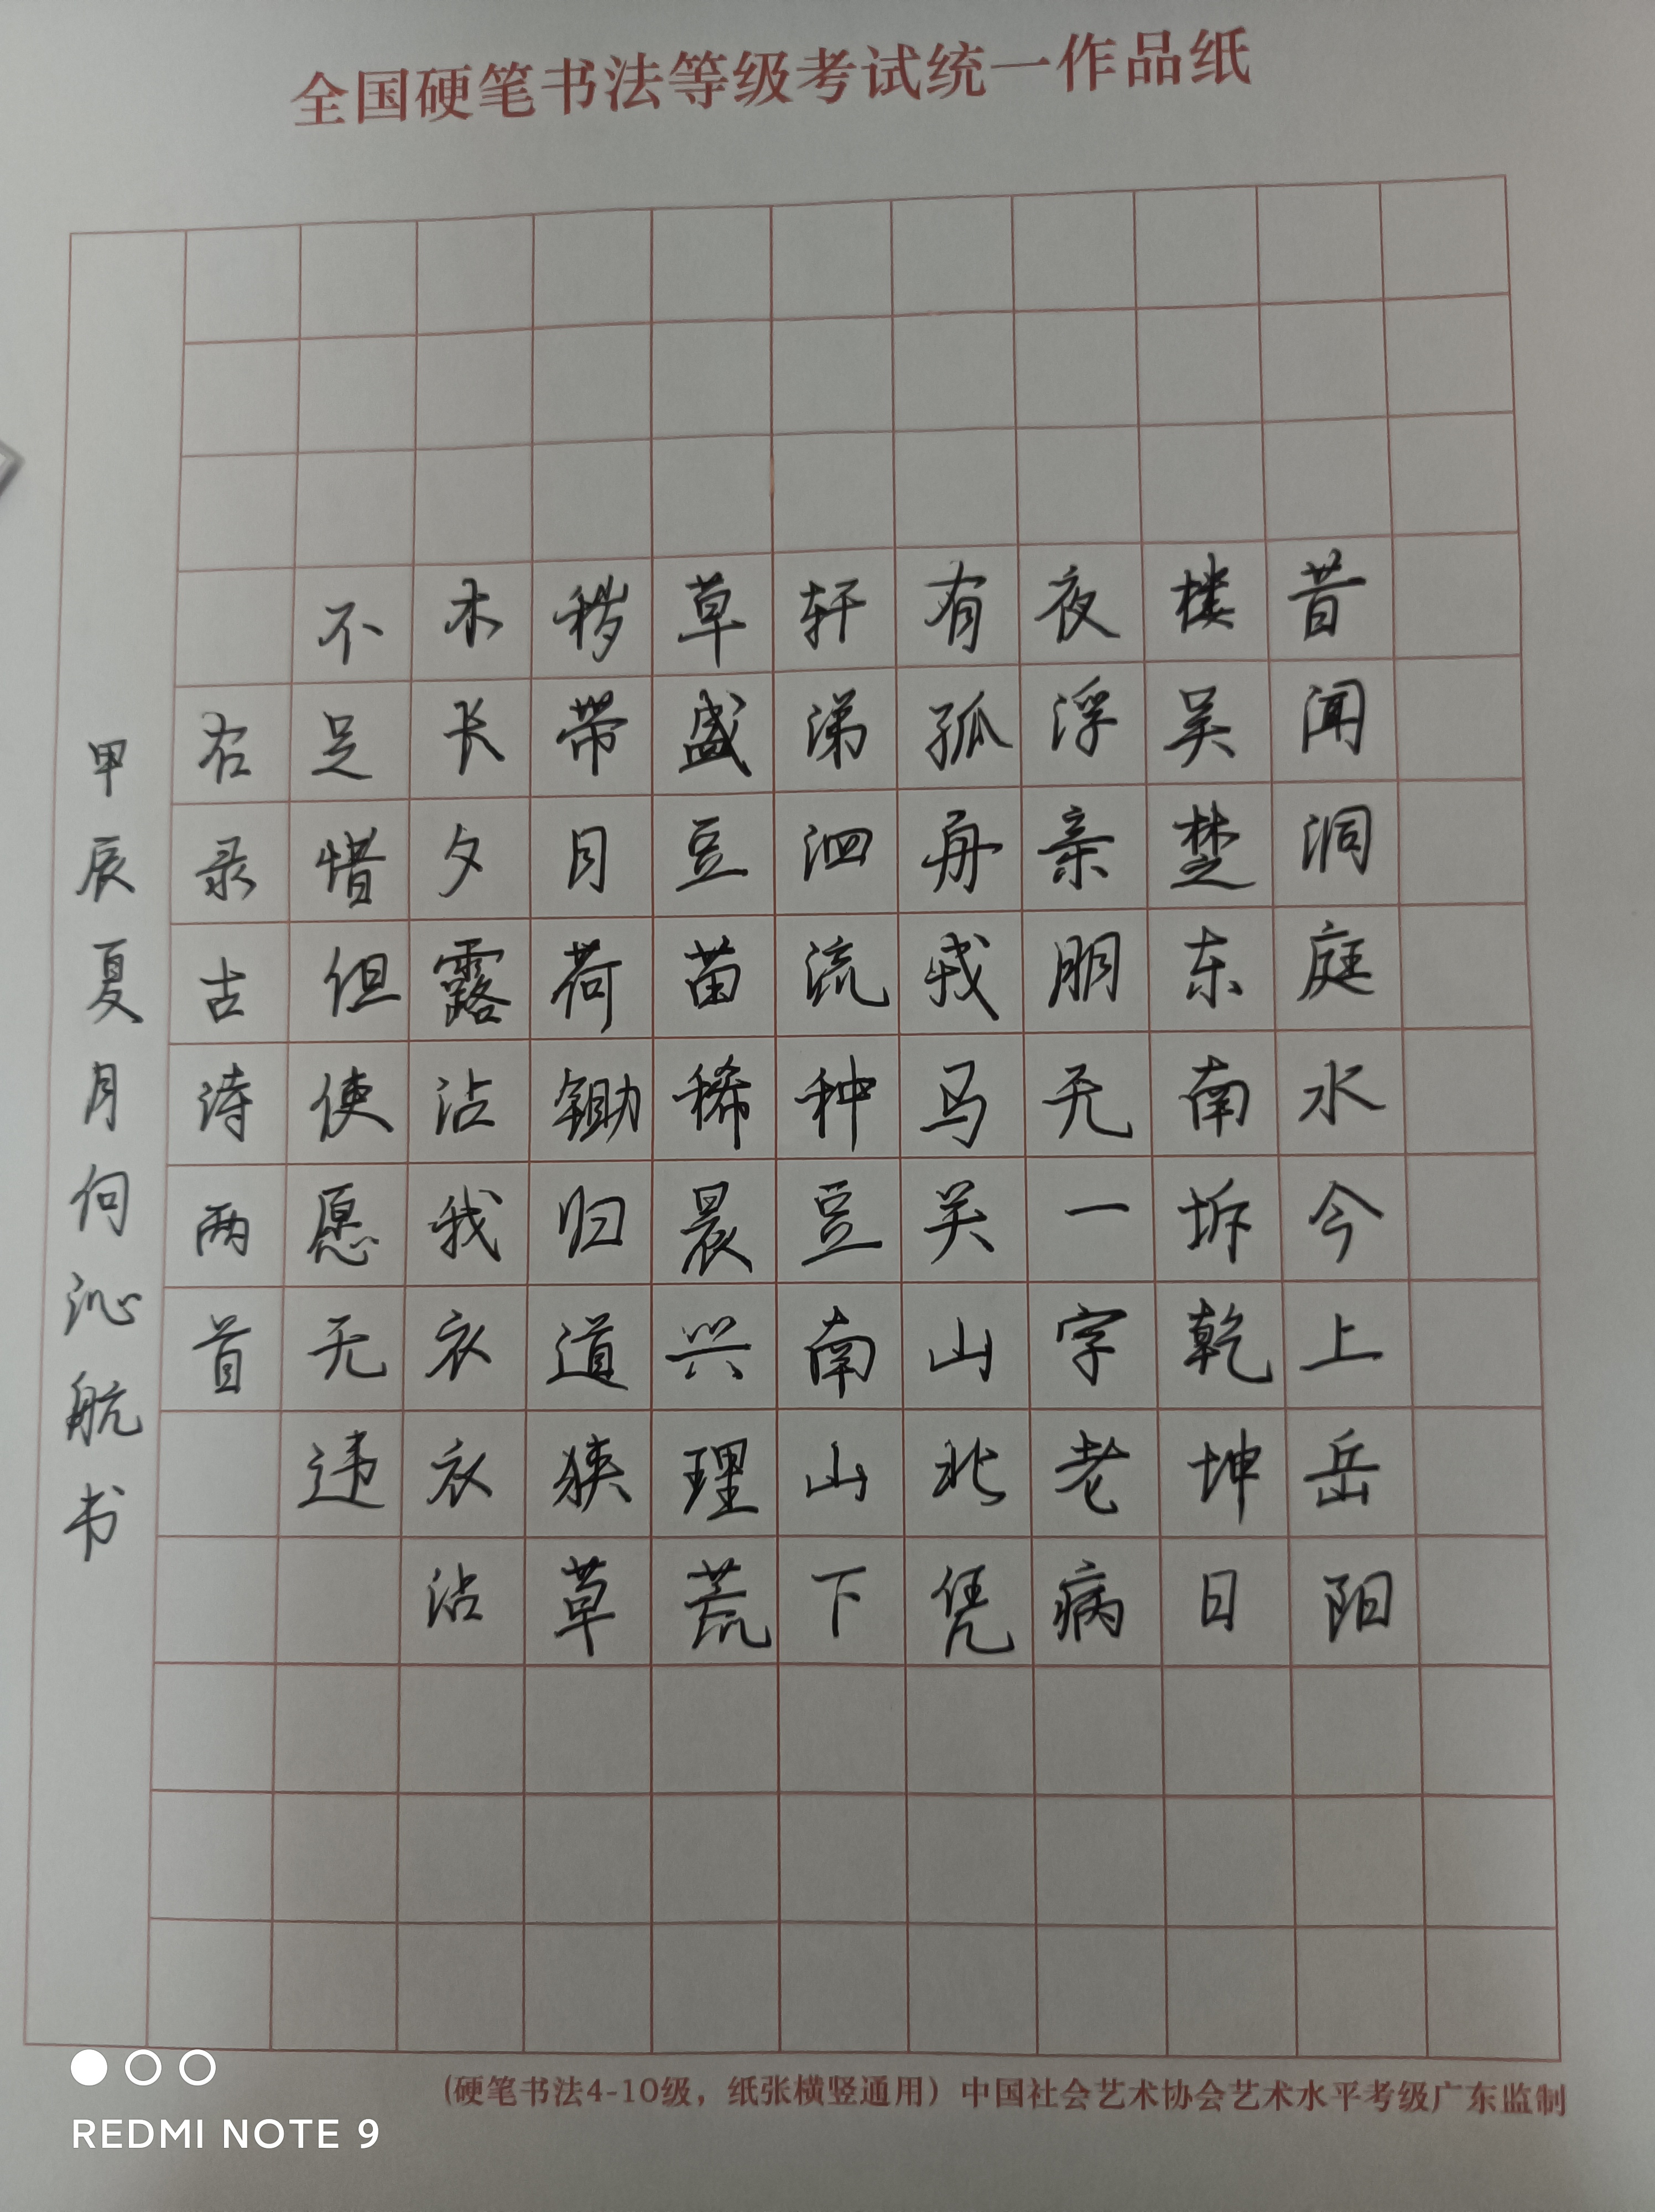 全国硬笔书法等级考试统一作品纸
昔闻洞庭水今上岳阳
楼吴楚东南坼乾坤日
夜浮亲朋无一字老病
有孤舟戎马关山北凭
轩涕泗流种豆南山下
草盛豆苗稀晨兴理荒
秽带月荷锄归道狭草
木长夕露沾我衣衣沾
不足惜但使愿无违
右录古诗两首
甲辰夏月何沁航书
(硬笔书法4-10级，纸张横竖通用）中国社会艺术协会艺术水平考级广东监制
REDMI NOTE 9